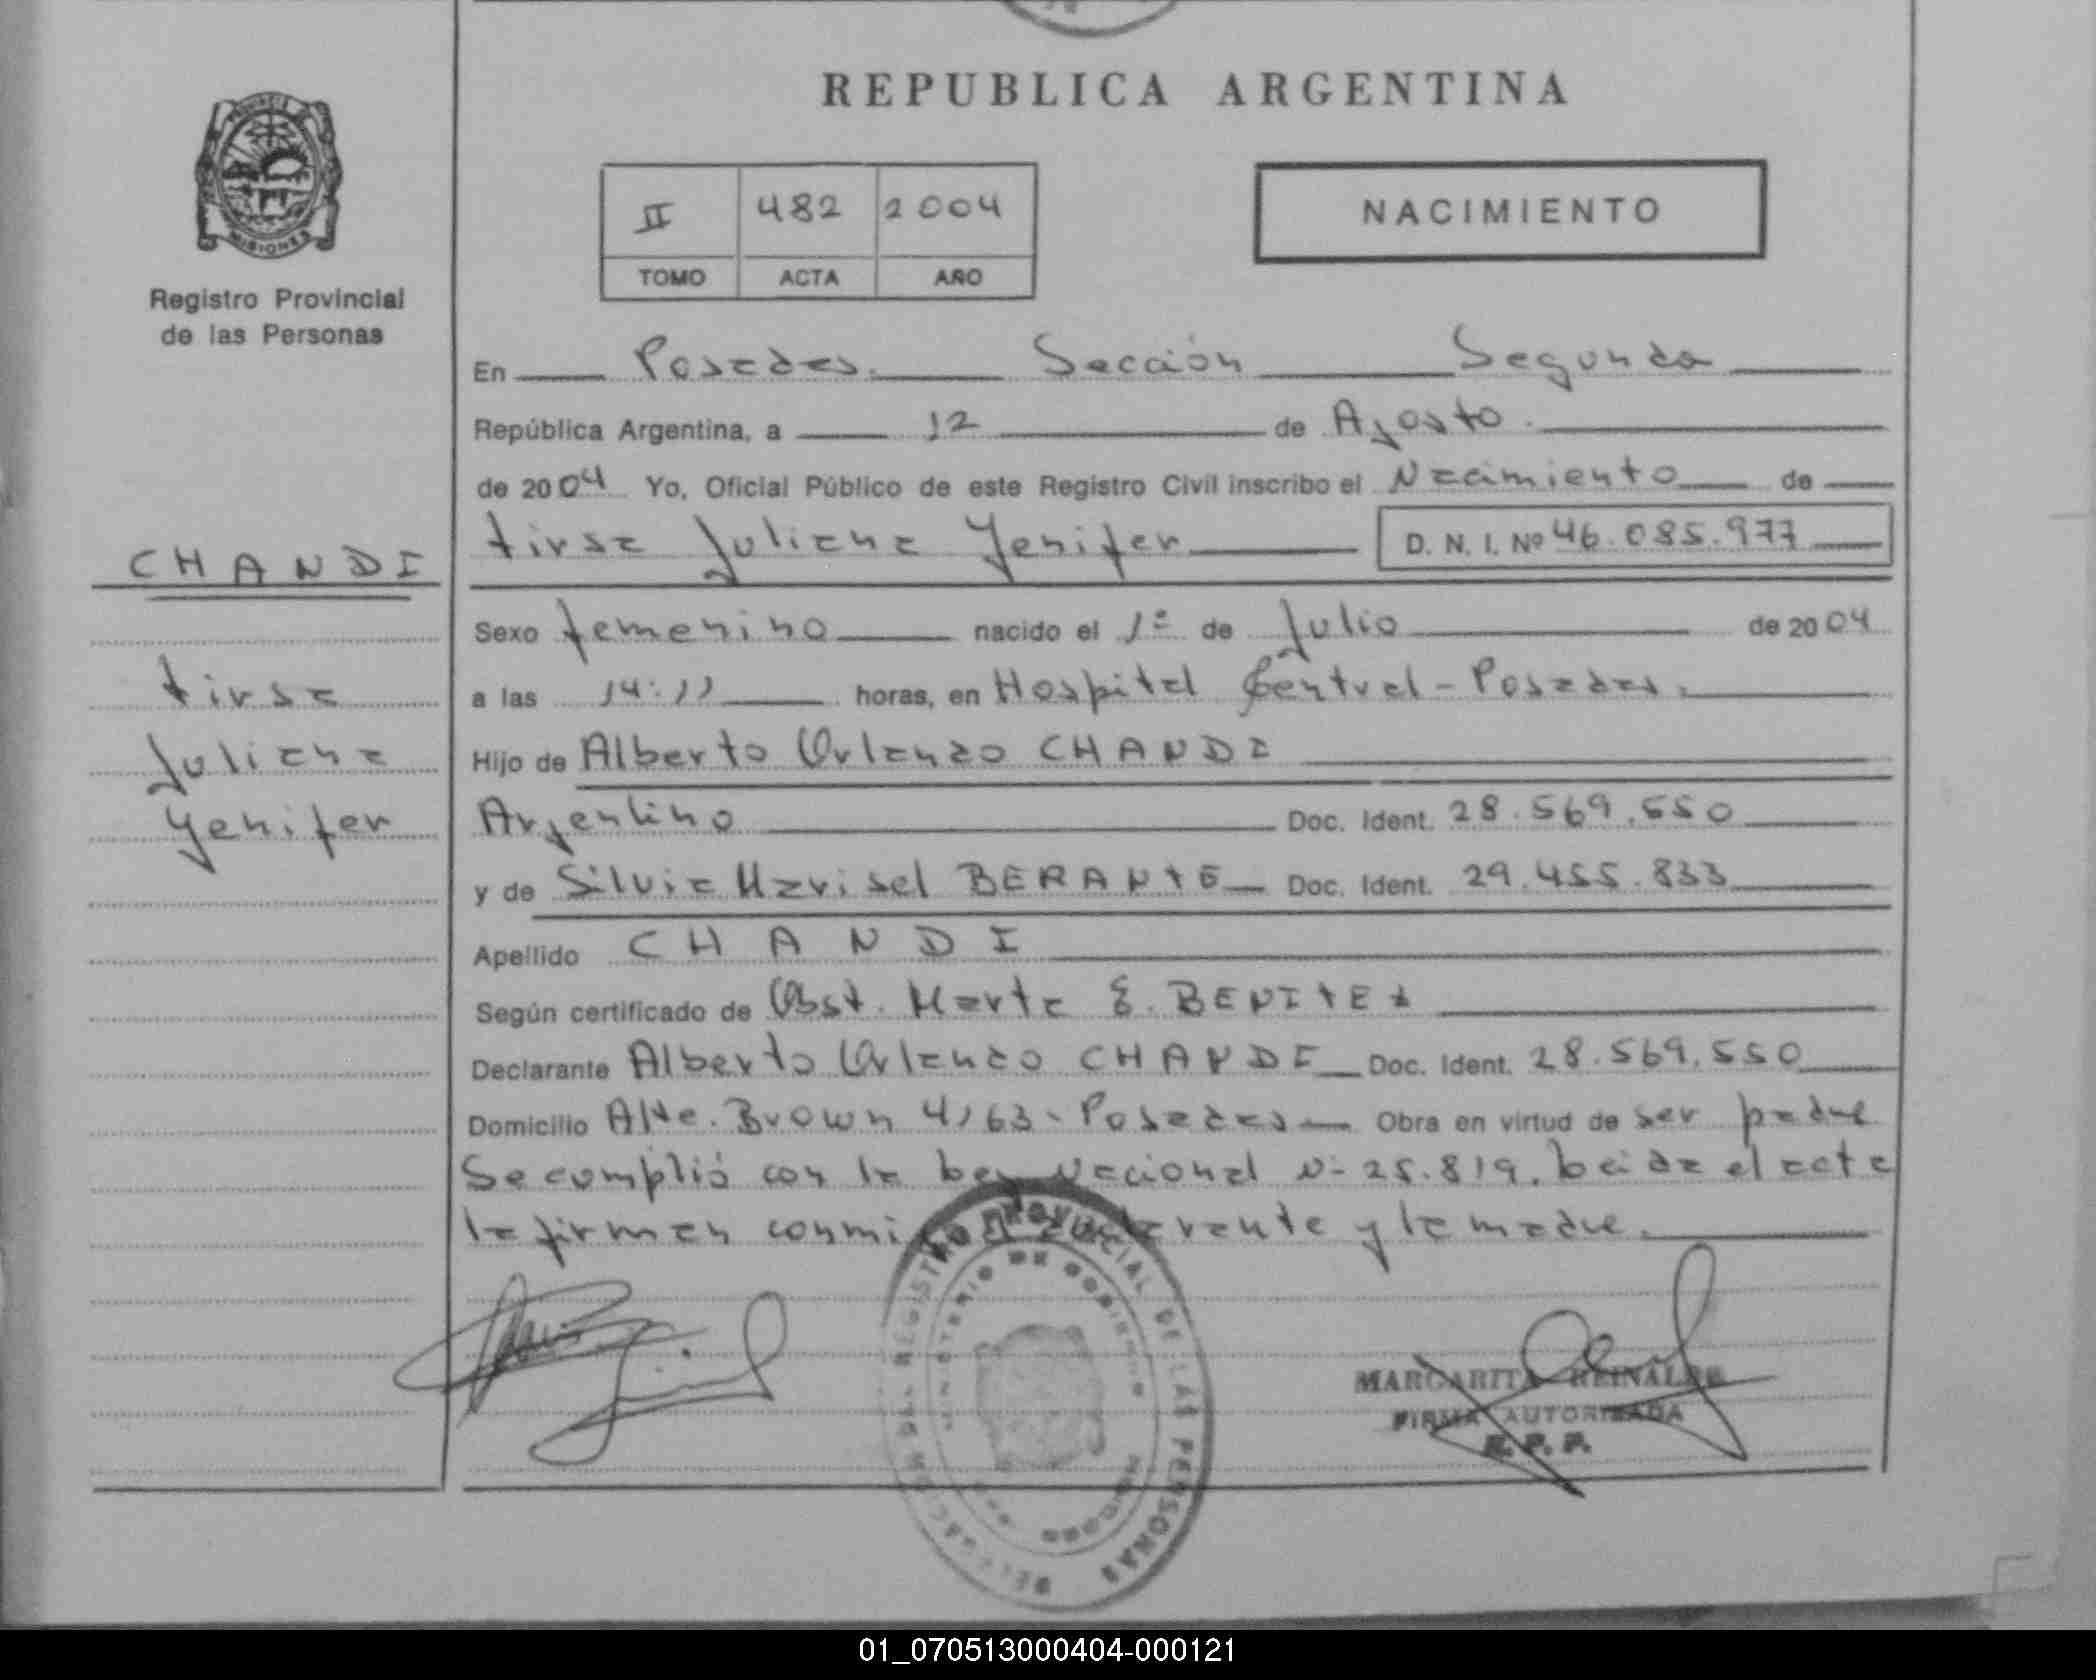 REPUBLICA ARGENTINA
II 482 2004
TOMO ACTA AÑO
NACIMIENTO
MISIONES
Registro Provincial
de las Personas
CHANDI
Tirsa
Juliana
Yenifer
En Posadas. Sección Segunda
República Argentina, a 12 de Agosto.
de 2004 Yo, Oficial Público de este Registro Civil inscribo el Nacimiento de
Tirsa Juliana Yenifer D. N. I. Nº 46.085.977
Sexo femenino nacido el 1º de Julio de 2004
a las 14:11 horas, en Hospital Central - Posadas.
Hijo de Alberto Orlando CHANDI
Argentino Doc. Ident. 28.569.550
y de Silvia Marisel BERANTE Doc. Ident. 29.455.833
Apellido CHANDI
Según certificado de Obst. Marta E. BENITEZ
Declarante Alberto Orlando CHANDI Doc. Ident. 28.569.550
Domicilio Alte. Brown 4163 - Posadas Obra en virtud de ser padre
Se cumplió con la Ley Nacional Nº 25.819. Leida el acta
la firman conmigo el declarante y la madre.
REGISTRO PROVINCIAL DE LAS PERSONAS
MINISTERIO DE GOBIERNO
DELEGACION
MARGARITA REINALDE
FIRMA AUTORIZADA
R. P. P.
01_070513000404-000121